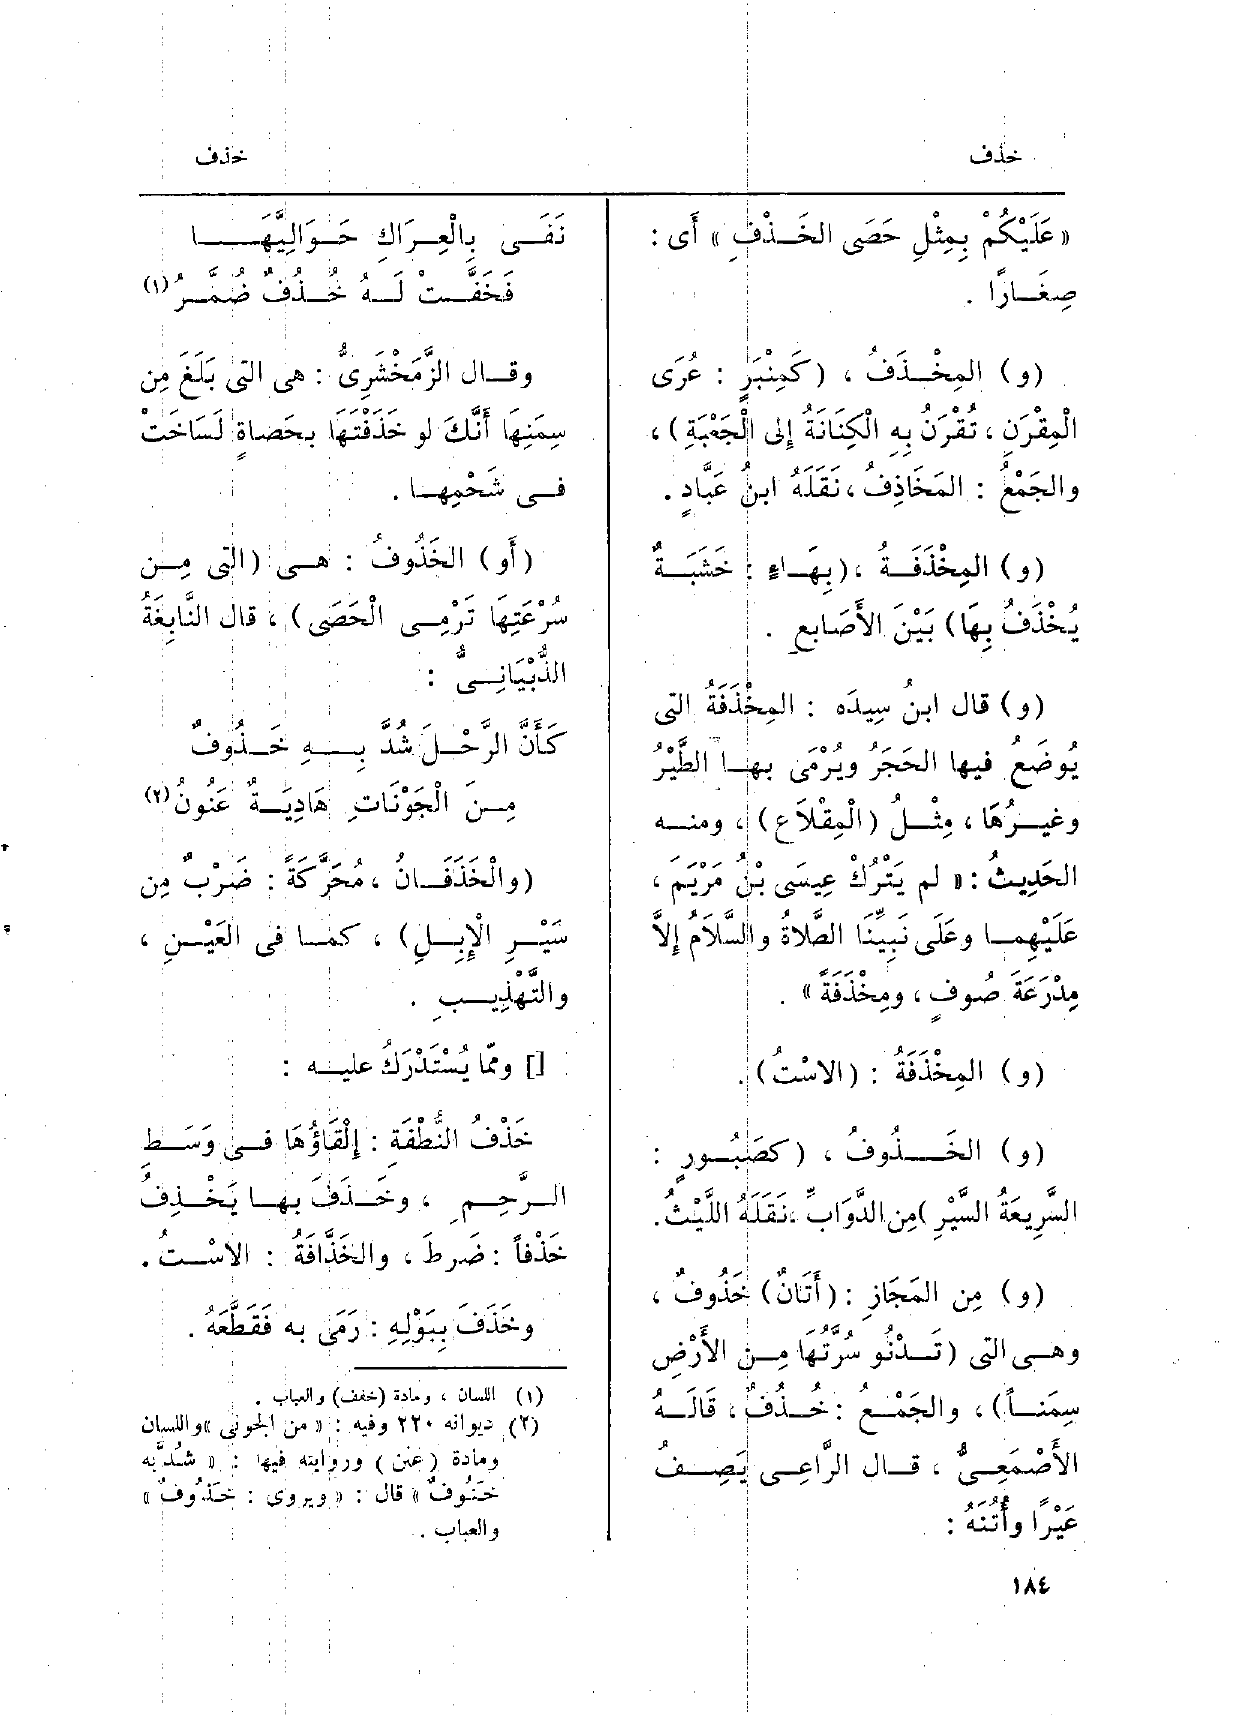 خذف
خذف
« عَلَيْكُمْ بِمِثْلِ حَصَى الخَذْفِ » أَى :
صِغَارًا .
(و) المِخْذَفُ ، (كَمِنْبَرٍ : عُرَى
الْمِقْرَنِ ، تُقْرَنُ بِهِ الْكِنَانَةُ إِلى الْجَعْبَةِ) ،
والجَمْعُ : المَخَاذِفُ ، نَقَلَهُ ابنُ عَبَّادٍ .
(و) المِخْذَفَةُ ، (بِهَاءٍ : خَشَبَةٌ
يُخْذَفُ بِهَا) بَيْنَ الأَصَابِعِ .
(و) قال ابنُ سِيدَه : المِخْذَفَةُ التى
يُوضَعُ فيها الحَجَرُ ويُرْمَى بها الطَّيْرُ
وغيرُهَا ، مِثْلُ (الْمِقْلَاعِ) ، ومنه
الحَدِيثُ : « لم يَتْرُكْ عِيسَى بْنُ مَرْيَمَ ،
عَلَيْهِما وعَلَى نَبِيِّنَا الصَّلاةُ والسَّلَامُ إِلاَّ
مِدْرَعَةَ صُوفٍ ، ومِخْذَفَةً » .
(و) المِخْذَفَةُ : (الاسْتُ) .
(و) الخَذُوفُ ، (كصَبُورٍ :
السَّرِيعَةُ السَّيْرِ) مِن الدَّوَابِّ ، نَقَلَهُ اللَّيْثُ .
(و) مِن المَجَازِ : (أَتَانٌ) خَذُوفٌ ،
وهى التى (تَدْنُو سُرَّتُهَا مِن الأَرْضِ
سِمَناً) ، والجَمْعُ : خُذُفٌ ، قَالَهُ
الأَصْمَعِىُّ ، قال الرَّاعِى يَصِفُ
عَيْرًا وأُتُنَهُ :
نَفَى بِالْعِرَاكِ حَوَالِيَّهَا
فَخَفَّت لَهُ خُذُفٌ ضُمَّرُ (١)
وقال الزَّمَخْشَرِىُّ : هى التى بَلَغَ مِن
سِمَنِهَا أَنَّكَ لو خَذَفْتَهَا بِحَصاةٍ لَسَاخَتْ
فى شَحْمِها .
(أَو) الخَذُوفُ : هى (التى مِن
سُرْعَتِهَا تَرْمِى الْحَصَى) ، قال النَّابِغَةُ
الذُّبْيَانِىُّ :
كَأَنَّ الرَّحْلَ شُدَّ بِهِ خَذُوفٌ
مِنَ الْجَوْنَاتِ هَادِيَةٌ عَنُونُ (٢)
(والْخَذَفَانُ ، مُحَرَّكَةً : ضَرْبٌ مِن
سَيْرِ الْإِبِلِ) ، كما فى العَيْنِ ،
والتَّهْذِيبِ .
[] وممّا يُسْتَدْرَكُ عليه :
خَذْفُ النُّطْفَةِ : إِلْقَاؤُهَا فى وَسَطِ
الرَّحِمِ ، وخَذَفَ بها يَخْذِفُ
خَذْفاً : ضَرِطَ ، والخَذَّافَةُ : الاسْتُ .
وخَذَفَ بِبَوْلِهِ : رَمَى به فَقَطَّعَهُ .
(١) اللسان ، ومادة (خفف) والعباب .
(٢) ديوانه ٢٢٠ وفيه : « من الجونى » واللسان
ومادة (عنن) وروايته فيها : « شُدَّ به
خَنُوفٌ » قال : « ويروى : خَذُوفٌ »
والعباب .
١٨٤